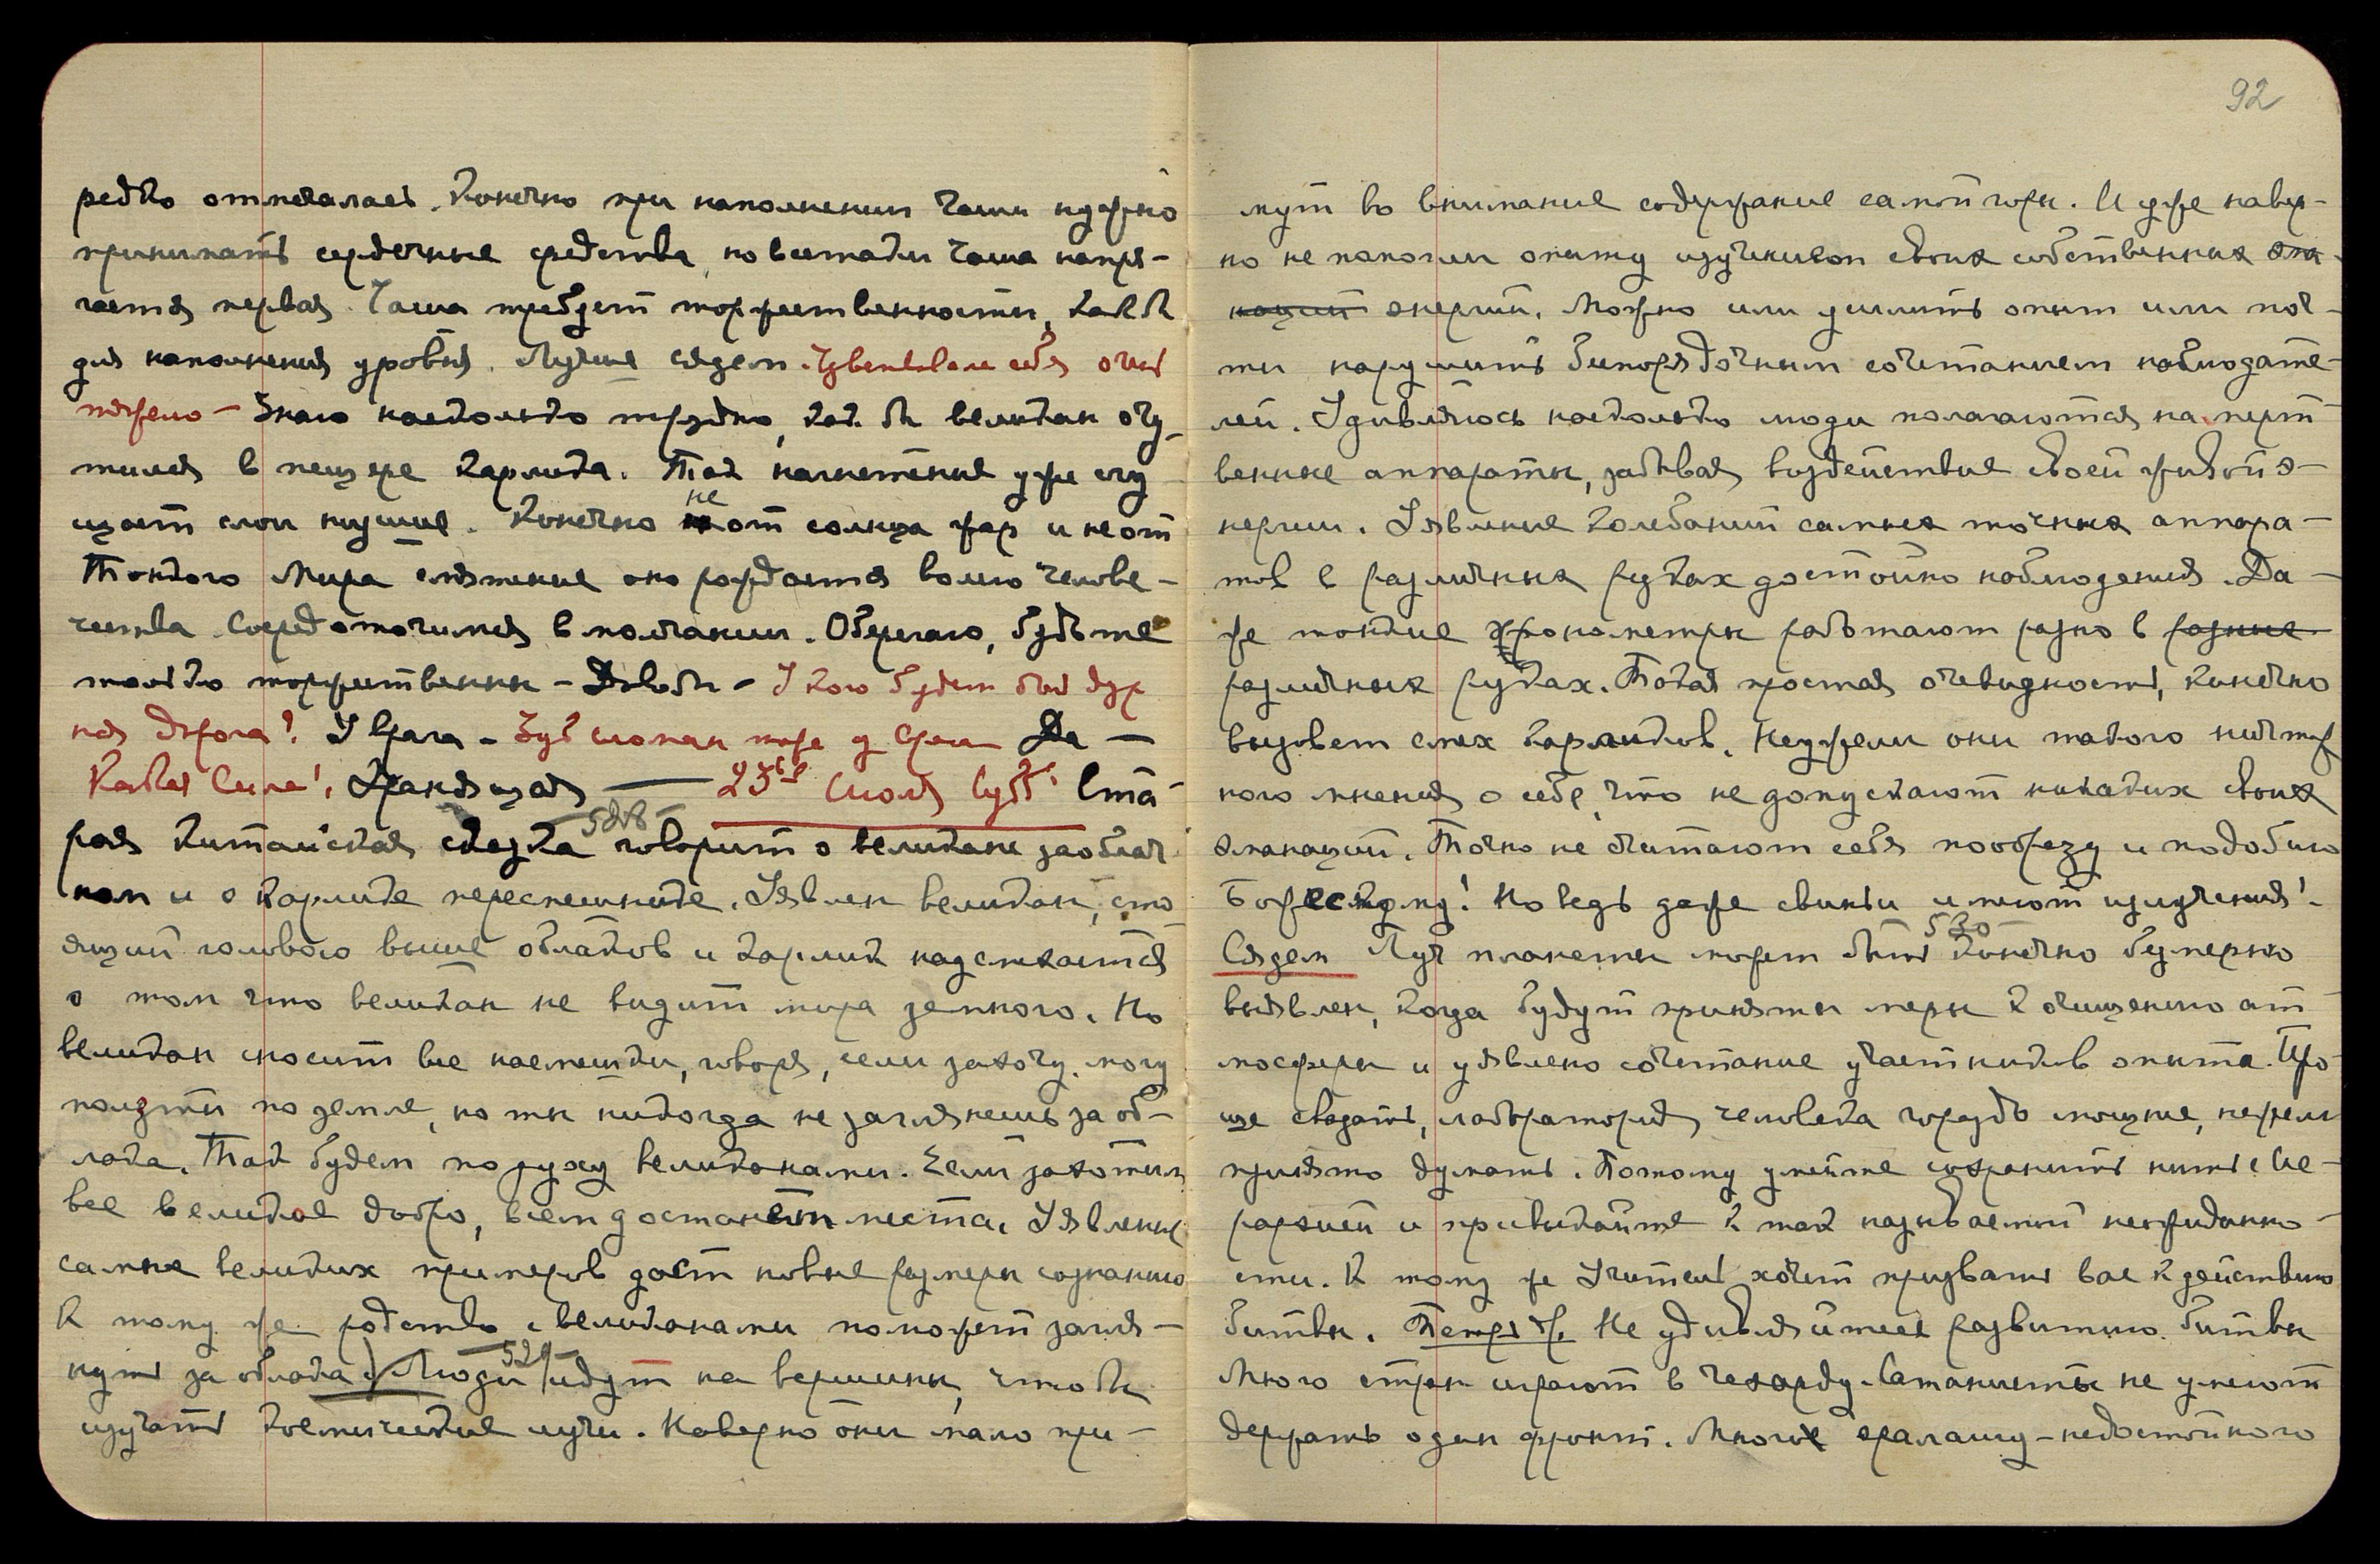 редко отмечалась. Конечно при наполнении чаши нужно
принимать сердечные средства, но всетаки чаша напря-
гается первая. Чаша требует торжественности, как бы
для наполнения уровня. Лучше сядем. Чувствовала себя очень
тяжело – Знаю насколько трудно, как бы великан очу-
тился в пещере карлика. Так нагнетение уже сгу
щает слои низшие. Конечно не от солнца жар и не от
Тонкого Мира смятение оно рождается волею челове-
чества. Сосредоточимся в молчании. Оберегаю, будьте
только торжественны – Довольно – У кого будет была дур
ная дорога? У врага – Зуб сломан тоже у врага Да —
Какая Сила? Хранящая — 23ье Июля Субб. Ста-
528
рая китайская сказка говорит о великане заоблач-
ном и о карлике пересмешнике. Уявлен великан, сто
ящий головою выше облаков и карлик надсмехается
о том что великан не видит мира земного. Но
великан сносит все насмешки, говоря, если захочу, могу
ползти по земле, но ты никогда не заглянешь за об-
лака. Так будем по духу великанами. Если захотим
все великое добро, всем достанет места. Уявление
самых великих примеров даст новые размеры сознанию
К тому же родство с великанами поможет загля-
529
нуть за облака. Люди идут на вершины, чтобы
изучать космические лучи. Наверно они мало при-
92
мут во внимание содержание самой горы. И уже навер-
но не помогли опыту изучением своих собственных эма-
наций энергий. Можно или усилить опыт или поч-
ти нарушить беспорядочным сочетанием наблюдате-
лей. Удивляюсь насколько люди полагаются на мерт
венные аппараты, забывая воздействие своей живой э-
нергии. Уявление колебаний самых точных аппара-
тов в различных руках достойно наблюдения. Да-
же тонкие хронометры работают разно в разные
различных руках. Такая простая очевидность, конечно
вызовет смех карликов. Неужели они такого ничтож
ного мнения о себе, что не допускают никаких своих
эманаций. Точно не считают себя по образу и подобию
Божескому! Но ведь даже свиньи имеют излучения!
530
Сядем Луч планеты может быть конечно безмерно
выявлен, когда будут приняты меры к очищению ат
мосферы и уявлено сочетание участников опыта. Про
ще сказать, лаборатория человека гораздо мощнее, нежели
принято думать. Потому умейте сохранить нить с Ие-
рархией и привыкайте к так называемой неожиданно-
сти. К тому же Учитель хочет призвать вас к действию
битвы. Теперь же Не удивляйтесь развитию битвы
Много стран играют в чехарду. Сатанисты не умеют
держать один фронт. Много ералашу – недостойного